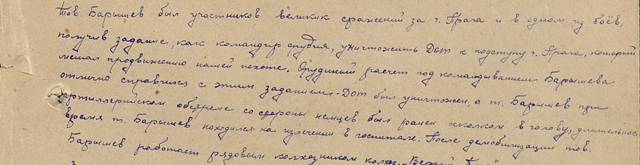 Тов Барышев был участников великих сражений за г. Прага и в одном из боёв,
получив задание, как командир орудия, уничтожить Дот к подступу г. Прага, который
мешал продвижению нашей пехоте. Орудийный расчет под командыванием Барышева
отлично справился с этим заданием - Дот был уничтожен, а т. Барышев при
артиллерийском обстреле со стороны немцев был ранен осколком в голову, длительное
время т. Барышев находился на излечении в госпитале. После демобилизации тов.
Барышев работает рядовым колхозником